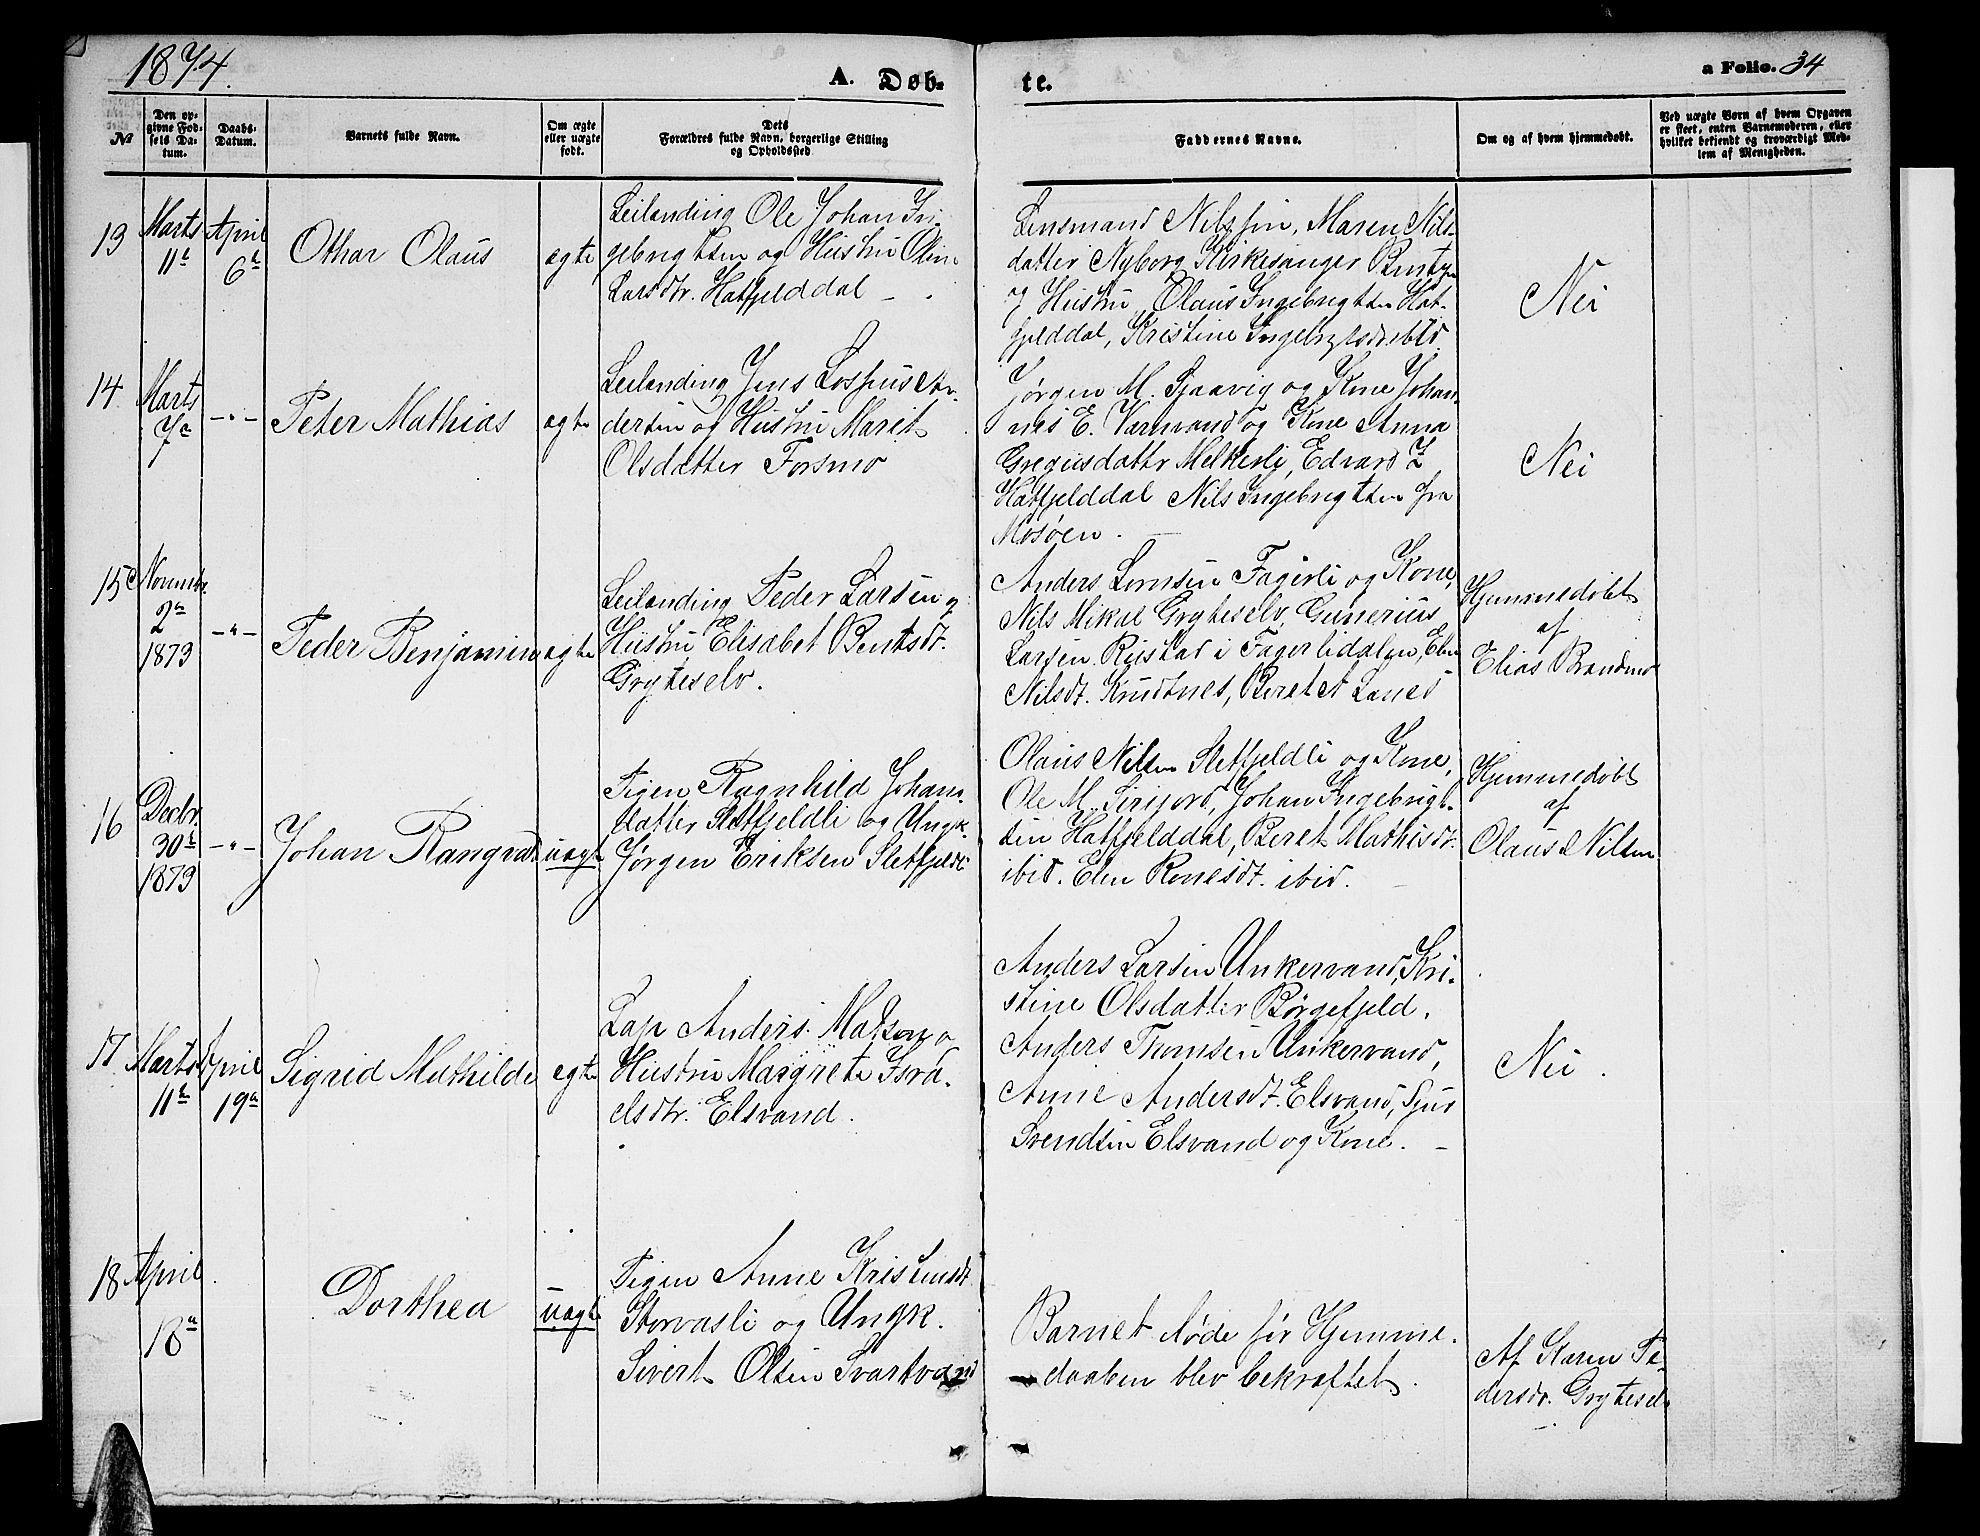 1874.
A. Døb-
te.
a Folio. 34
№
Den op-
givne Fød-
sels Da-
tum.
Daabs-
Datum.
Barnets fulde Navn.
Om ægte
eller uægte
født.
Dets
Forældres fulde Navn, borgerlige Stilling
og Opholdssted
Faddernes Navne.
Om og af hvem hjemmedøbt.
Ved uægte Børn af hvem Opgaven
er skeet, enten Barnemoderen, eller
hvilket bekjendt og troværdigt Med-
lem af Menigheden.
13
Marts
11te
April
6te
Othar Olaus
ægte
Leilænding Ole Johan In-
gebrigtsen og Hustru Oline
Larsdtr. Hatfjelddal
Lensmand Nilssen, Maren Nils-
datter Nyborg Kirkesanger Bentzen
og Hustru, Olaus Ingebrigtsen Hat-
fjelddal, Kristine Ingebrgtsdt ibid.
Nei
14
Marts
7de
-"-
Peter Mathias
ægte
Leilænding Jens
dersen og Hustru Marit
Olsdatter Forsmo
Jørgen M. Sjaavig og Kone, Johan-
nes E. Varnvand og Kone Anna
Gregusdattr Melkerli, Edvard I
Hatfjelddal Nils Ingebrigtsen fra
Mosøen.
Nei
15
Novembr
2den
1873
-"-
Peder Benjamin
ægte
Leilænding Peder Larsen og
Hustru Elisabet Bentsdt.
Gryteselv.
Anders Lornsen Fagerli og Kone,
Nils Mikal Gryteselv, Gunerius
Larsen Rustad i Fagerlidalen, Elen
Nilsdt. Knudtnes, Beret A
Hjemmedøbt
af
Elias Brandmo
16
Decbr.
30te
1873
-"-
Johan Rangvald
uægte
Pigen Ragnhild Johans-
datter Sletfjeldli og Ungk.
Jørgen Eriksen Sletfjeldli
Olaus Nilsen Sletfjeldli og Kone,
Ole M. Sirijord, Johan Ingebrigt-
sen Hatfjelddal, Beret Mathisdt.
ibid. Elen Ronesdt. ibid.
Hjemmedøbt
af
Olaus Nilsen
17
Marts
11te
April
19de
Sigrid Mathilde
egte
Lap Anders Matson o
Hustru Margrete Isra-
elsdtr. Elsvand.
Anders Larsen Unkervand, Kri-
stine Olsdatter Børgefjeld,
Anders Thomsen Unkervand,
Anne Andersdt. Elsvand, Sjur
Svendsen Elsvand og Kone.
Nei.
18
April
18de
Dorthea
uægte
Pigen Anne Kristensdt.
Storvasli og Ungk.
Sivert Olsen Svartvand
Barnet døde før Hjemme-
daaben blev bekræftet.
Af Karen Pe-
dersdr. Gryteselv